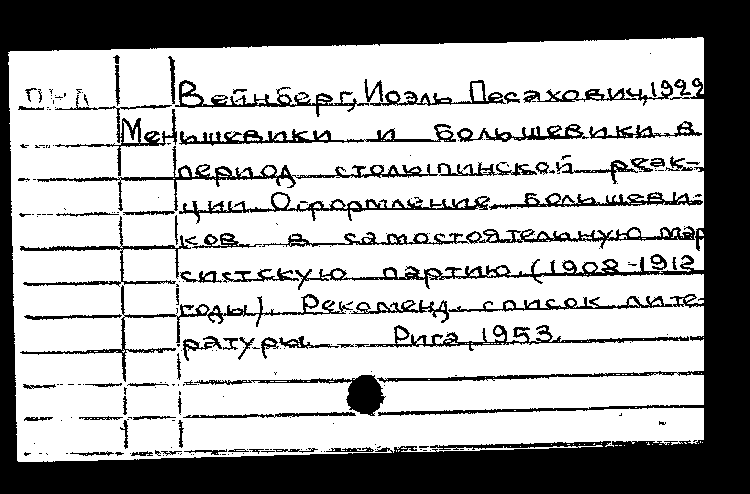 Вейнберг, Иоэль Песахович, 1922
Меньшевики и большевики в
период столыпинской реак-
ции. Оформление большеви-
ков в самостоятельную мар
систскую партию. (1908-1912
годы). Рекоменд. список лите-
ратуры. Рига, 1953.